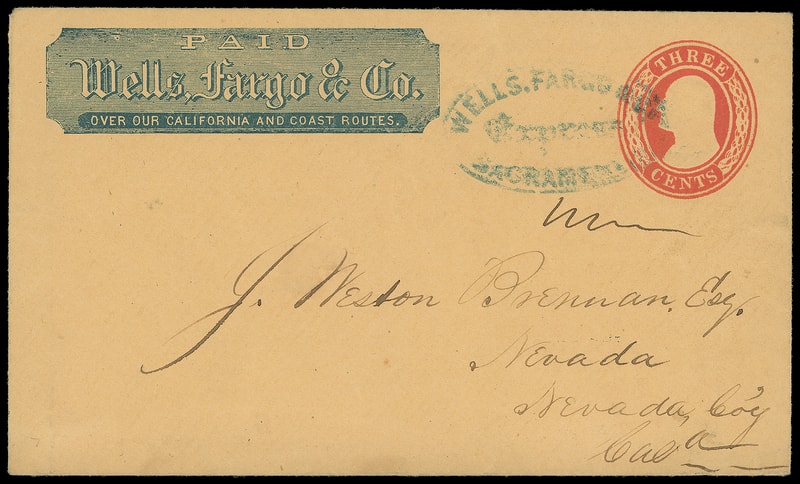 PAID
Wells, Fargo & Co.
OVER OUR CALIFORNIA AND COAST ROUTES.
WELLS, FARGO & Co's
Express
SACRAMENTO
THREE
CENTS
J. Weston Brennan, Esq.
Nevada
Nevada Co'y
Cala